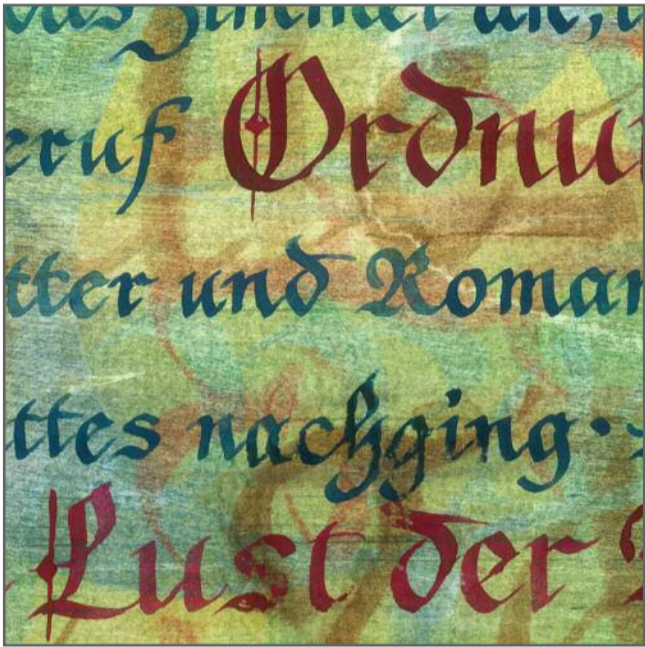 das Zimmer an,
eruf Ordnu
tter und Roman
ttes nachging ·
Lust der